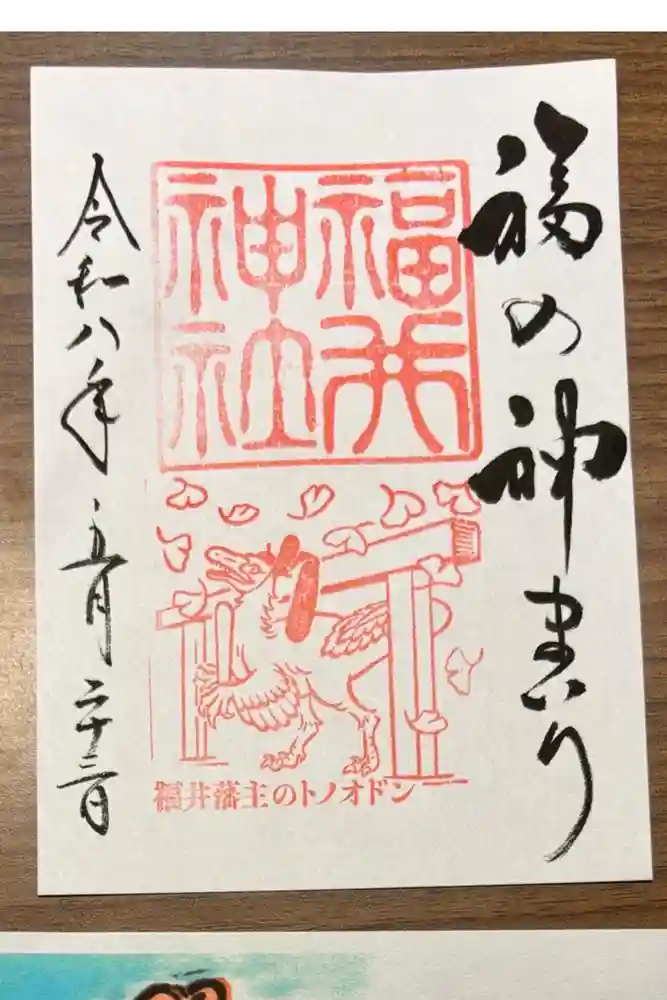 福の神まいり
福井
神社
福井藩主のトノオドン
令和八年五月二十三日